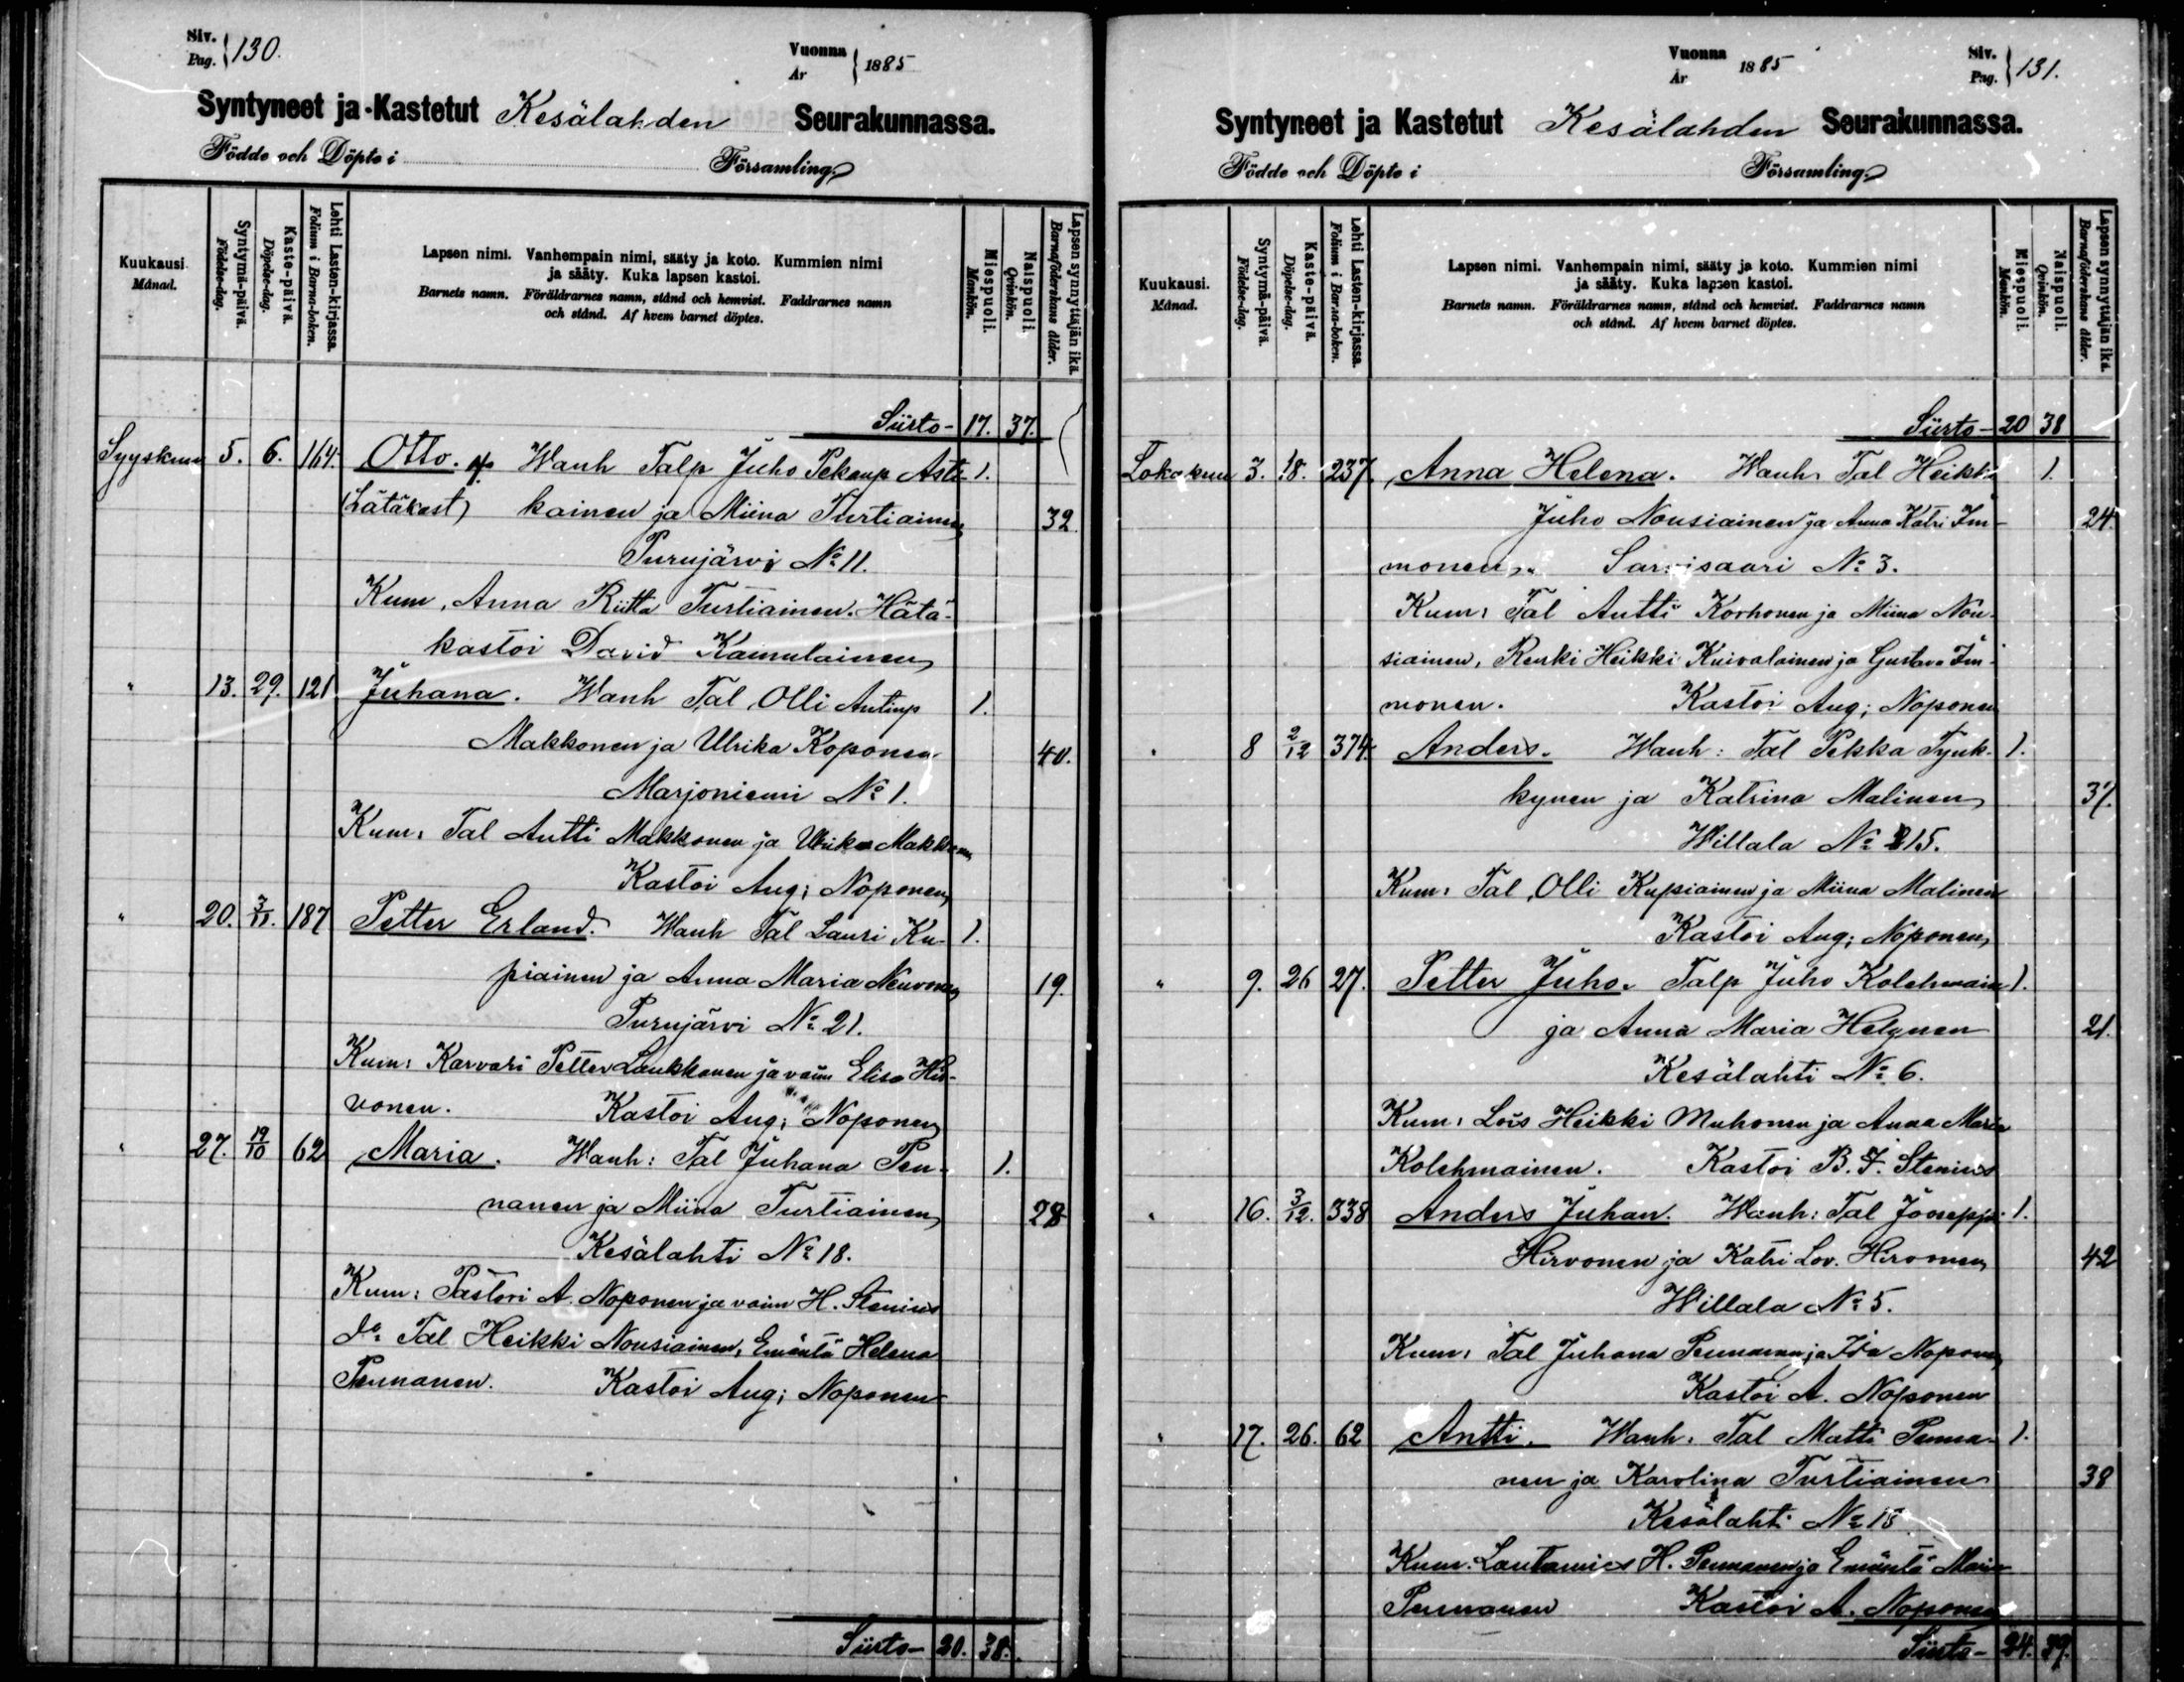 Siv. Pag. 130.
Vuonna År 1885
Syntyneet ja Kastetut Kesälahden Seurakunnassa.
Födde och Döpte i Församling
Kuukausi. Månad.
Syntymä-päivä. Födelse-dag.
Kaste-päivä. Döpelse-dag.
Lehti Lasten-kirjassa. Folium i Barna-boken.
Lapsen nimi. Vanhempain nimi, sääty ja koto. Kummien nimi
ja sääty. Kuka lapsen kastoi.
Barnets namn. Föräldrarnes namn, stånd och hemvist. Faddrarnes namn
och stånd. Af hvem barnet döptes.
Miespuoli. Mankön.
Naispuoli. Qvinkön.
Lapsen synnyttäjän ikä. Barnaföderskans ålder.
Siirto- 17. 37.
Syyskuu 5. 6. 164. Otto. Wanh Talp Juho Pekanp Asti- 1.
(Hätäkast) kainen ja Miina Turtiainen 32
Purujärvi No 11.
Kum, Anna Riitta Turtiainen. Hätä-
kastoi David Kainulainen
" 13. 29. 121 Juhana. Wanh Tal Olli Antinp 1.
Makkonen ja Ulrika Koponen 40.
Marjoniemi No 1.
Kum: Tal Antti Makkonen ja Ulrika Makkonen
Kastoi Aug; Noponen
" 20. 3/11. 187 Petter Erland. Wanh Tal Lauri Ku- 1.
piainen ja Anna Maria Neuvonen 19.
Purujärvi No 21.
Kum: Karvari Petter Laukkanen ja vaim Elisa Hir-
vonen. Kastoi Aug; Noponen
" 27. 19/10 62 Maria. Wanh: Tal Juhana Pen- 1.
nanen ja Miina Turtiainen 28
Kesälahti No 18.
Kum: Pastori A. Noponen ja vaim H. Stenius
do Tal Heikki Nousiainen, Emäntä Helena
Pennanen. Kastoi Aug; Noponen
Siirto- 20. 38.
Vuonna År 1885
Siv. Pag. 131.
Syntyneet ja Kastetut Kesälahden Seurakunnassa.
Födde och Döpte i Församling
Kuukausi. Månad.
Syntymä-päivä. Födelse-dag.
Kaste-päivä. Döpelse-dag.
Lehti Lasten-kirjassa. Folium i Barna-boken.
Lapsen nimi. Vanhempain nimi, sääty ja koto. Kummien nimi
ja sääty. Kuka lapsen kastoi.
Barnets namn. Föräldrarnes namn, stånd och hemvist. Faddrarnes namn
och stånd. Af hvem barnet döptes.
Miespuoli. Mankön.
Naispuoli. Qvinkön.
Lapsen synnyttäjän ikä. Barnaföderskans ålder.
Siirto- 20 38
Lokakuu 3. 18. 237 Anna Helena. Wanh Tal Heikki 1.
Juho Nousiainen ja Anna Katri Im- 24
monen. Sarvisaari No 3.
Kum: Tal Antti Korhonen ja Miina Nou-
siainen, Renki Heikki Kuivalainen ja Gustava Im-
monen. Kastoi Aug; Noponen
" 8 2/12 374 Anders. Wanh: Tal Pekka Tynk- 1.
kynen ja Katrina Malinen 37.
Willala No 15.
Kum: Tal Olli Kupiainen ja Miina Malinen
Kastoi Aug; Noponen
" 9. 26 27. Petter Juho. Talp Juho Kolehmain 1.
ja Anna Maria Helynen 21.
Kesälahti No 6.
Kum: Lois Heikki Muhonen ja Anna Maria
Kolehmainen. Kastoi B. F. Stenius
" 16. 3/12. 338 Anders Juhan. Wanh: Tal Jooseppi 1.
Hirvonen ja Katri Lov. Hirvonen 42
Willala No 5.
Kum: Tal Juhana Pennanen ja Ida Noponen
Kastoi A. Noponen
" 17. 26. 62 Antti. Wanh. Tal Matti Penna- 1.
nen ja Karolina Turtiainen 38
Kesälahti No 18
Kum: Lautamies H. Pennanen ja Emäntä Maria
Pennanen Kastoi A. Noponen
Siirto- 24. 39.